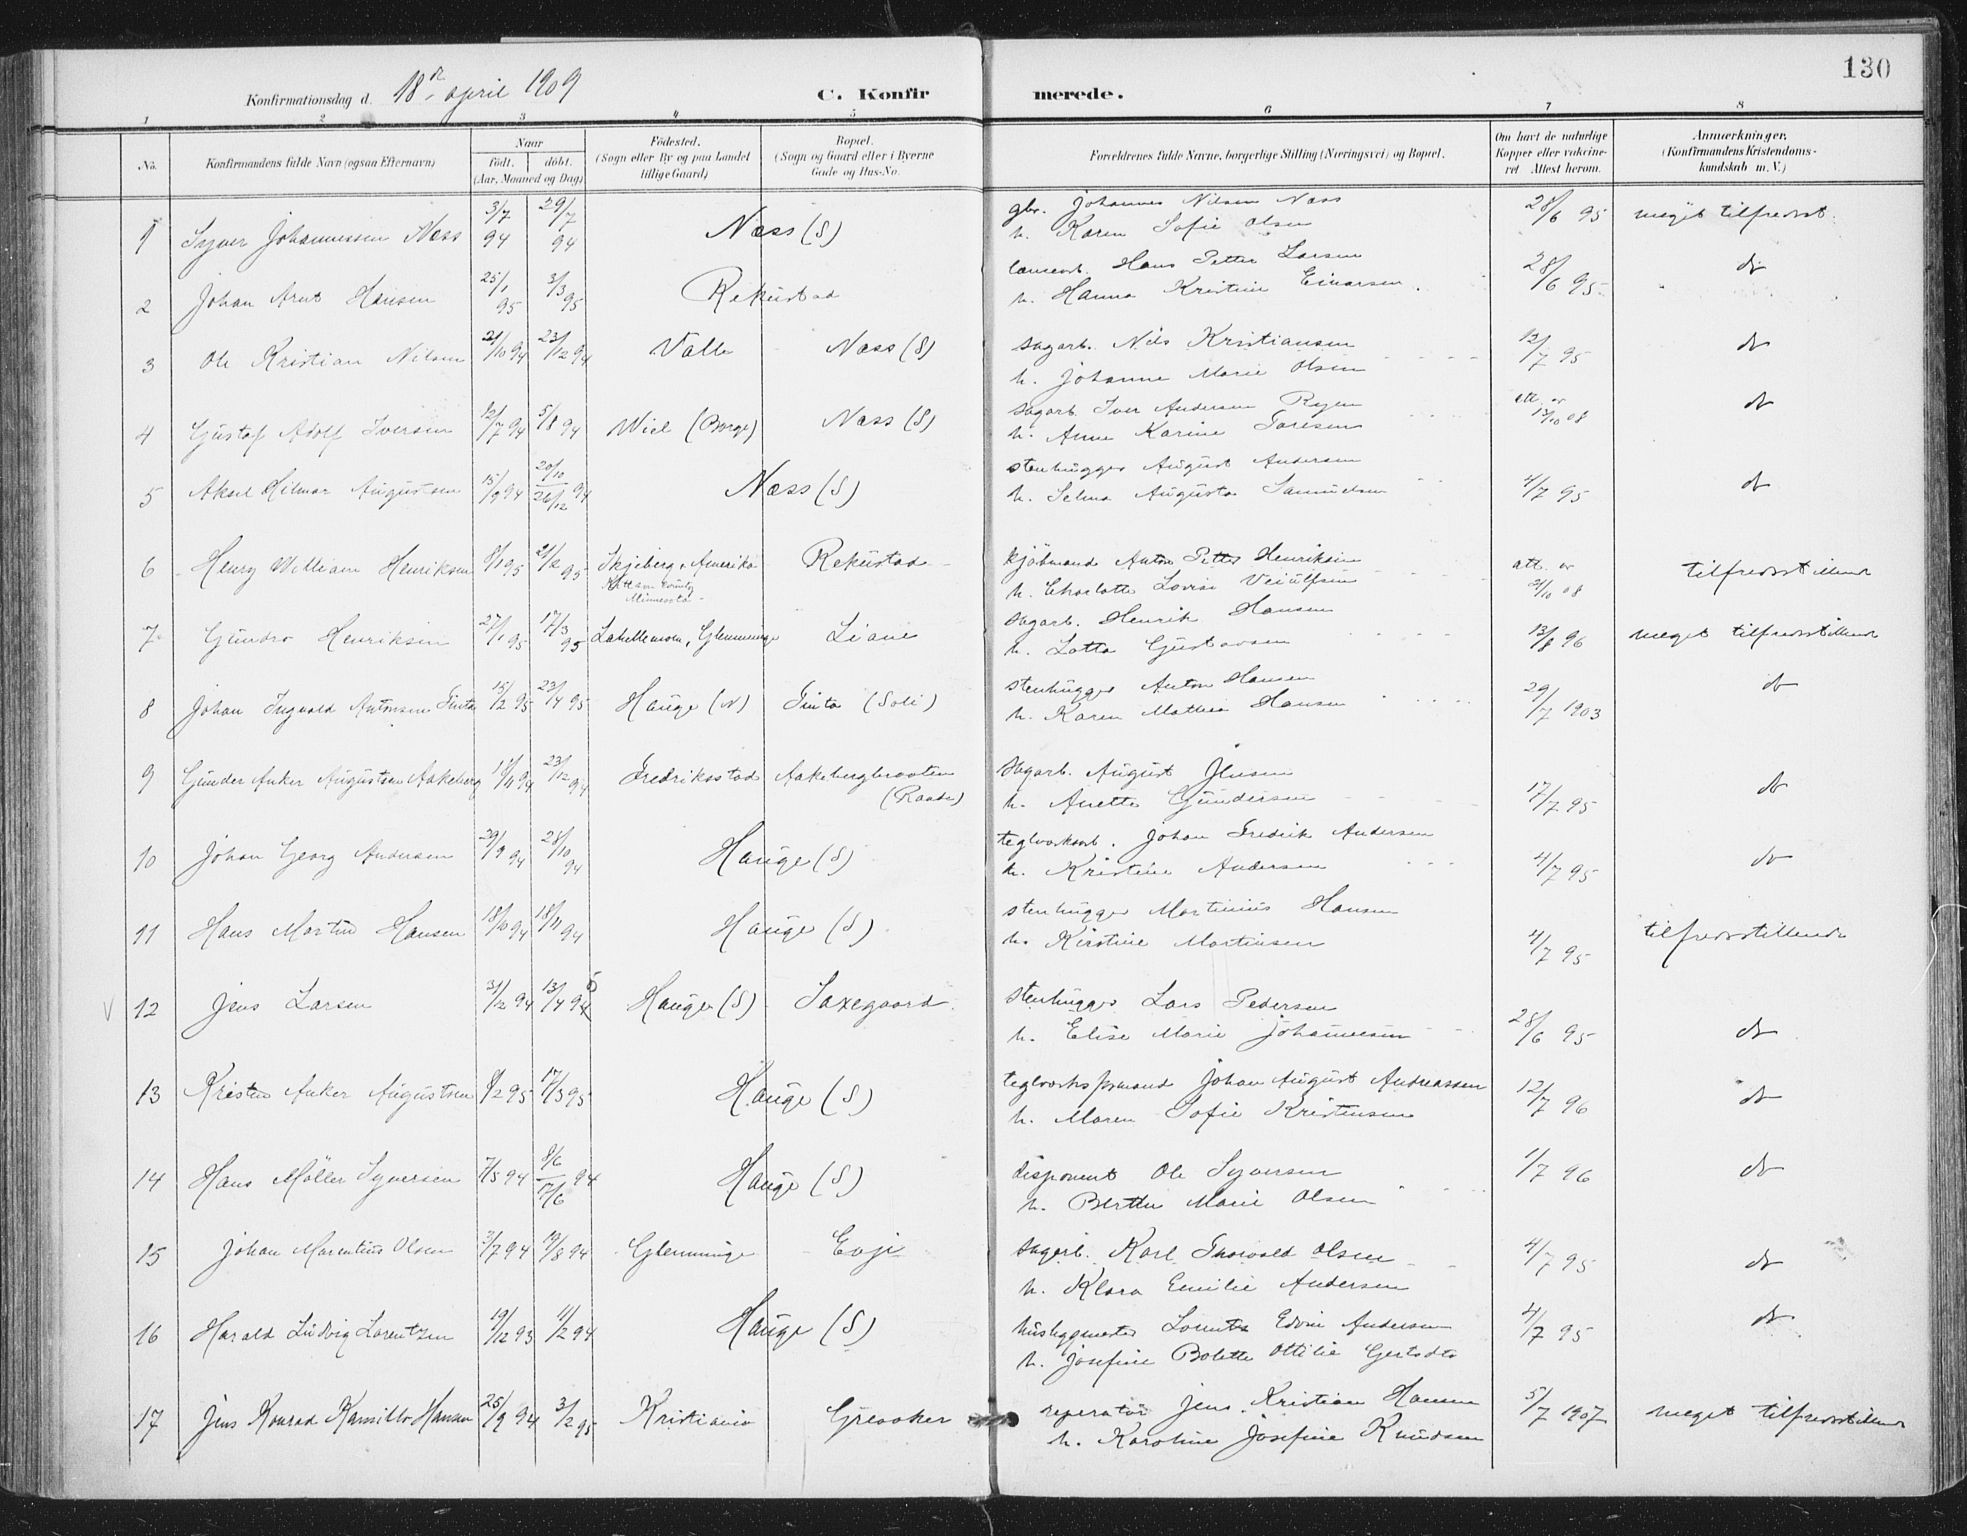 130
Konfirmationsdag d. 18de april 1909
C. Konfirmerede.
1 2 3 4 5 6 7 8
No. Konfirmandens fulde Navn (ogsaa Efternavn) Naar født. døbt. (Aar, Maaned og Dag) Fødested. (Sogn eller By og paa Landet tillige Gaard) Bopæl. (Sogn og Gaard eller i Byerne Gade og Hus-No. Forældrenes fulde Navne, borgerlige Stilling (Næringsvei) og Bopæl. Om havt de naturlige Kopper eller vaccineret Attest herom. Anmærkninger. (Konfirmandens Kristendomskundskab m. V.)
1 Syver Johannessen Næss 3/7 94 29/7 94 Næss (S) gbr. Johannes Nilsen Næss 28/6 95 meget tilfredsst.
h. Karen Sofie Olsen
2 Johan Arnt Hansen 25/1 95 3/3 95 Rekustad Hans Petter Larsen 28/6 95 do
h. Hanna Kristine Einarsen
3 Ole Kristian Nilsen 21/10 94 23/12 94 Valle Næss (S) sagarb. Nils Kristiansen 12/7 95 do
h. Johanne Marie Olsen
4 Gustaf Adolf Iversen 12/7 94 5/8 94 Wiel (Borge) Næss (S) sagarb. Iver Andersen Ryen att. av 13/10 08 do
h. Anne Karine Toresen
5 Aksel Hilmar Augustsen 15/9 94 20/10 26/12 94 Næss (S) stenhugger August Andersen 4/7 95 do
h. Selma Augusta Samuelsen
6 Henry William Henriksen 8/1 95 21/2 95 Skjeberg, Amerika Rekustad kjøbmand Anton Petter Henriksen att. av 21/10 08 tilfredsstillende
County Minnesota h. Charlotte Lovise Veiulfsen
7 Gundro Henriksen 27/1 95 17/3 95 Glemminge Liane sagarb. Henrik Hansen 13/8 96 meget tilfredsstillende
h. Lotta Gustavsen
8 Johan Ingvald Antonsen Tinta 15/2 95 23/4 95 Hauge (N) Tinta (Soli) stenhugger Anton Hansen 29/7 1903 do
h. Karen Mathea Hansen
9 Gunder Anker Augustsen Aakeberg 17/11 94 23/12 94 Fredriksstad Aakebergbraaten (Raade) sagarb. August Jensen 17/7 95 do
h. Anette Gundersen
10 Johan Georg Andersen 29/9 94 28/10 94 Hauge (S) teglverksarb. Johan Fredrik Andersen 4/7 95 do
h. Kristine Andersen
11 Hans Martin Hansen 18/10 94 18/11 94 Hauge (S) stenhugger Martinius Hansen 4/7 95 tilfredsstillende
h. Kirstine Martinsen
12 Jens Larsen 31/12 94 13/4 945 Hauge (S) Saxegaard stenhugger Lars Pedersen 28/6 95 do
h. Elise Marie Johannesen
13 Kristen Anker Augustsen 9/2 95 17/3 95 Hauge (S) teglverksformand Johan August Andreassen 12/7 96 do
h. Maren Sofie Kristensen
14 Hans Møller Syversen 7/5 94 8/6 7/6 94 Hauge (S) disponent Ole Syversen 1/7 96 do
h. Berthe Marie Olsen
15 Johan Marentius Olsen 3/7 94 19/8 94 Glemminge Evje sagarb. Karl Thorvald Olsen 4/7 95 do
h. Klara Emilie Andersen
16 Harald Ludvig Lorentzen 19/12 93 11/2 94 Hauge (S) husbygmester Lorentz Edvin Andersen 4/7 95 do
h. Josefine Bolette Ottilie
17 Jens Konrad Kamillo Hansen 25/9 94 3/2 95 Kristiania Greaaker reperatør Jens Kristian Hansen 5/7 1907 meget tilfredsstillende
h. Karoline Josefine Knudsen